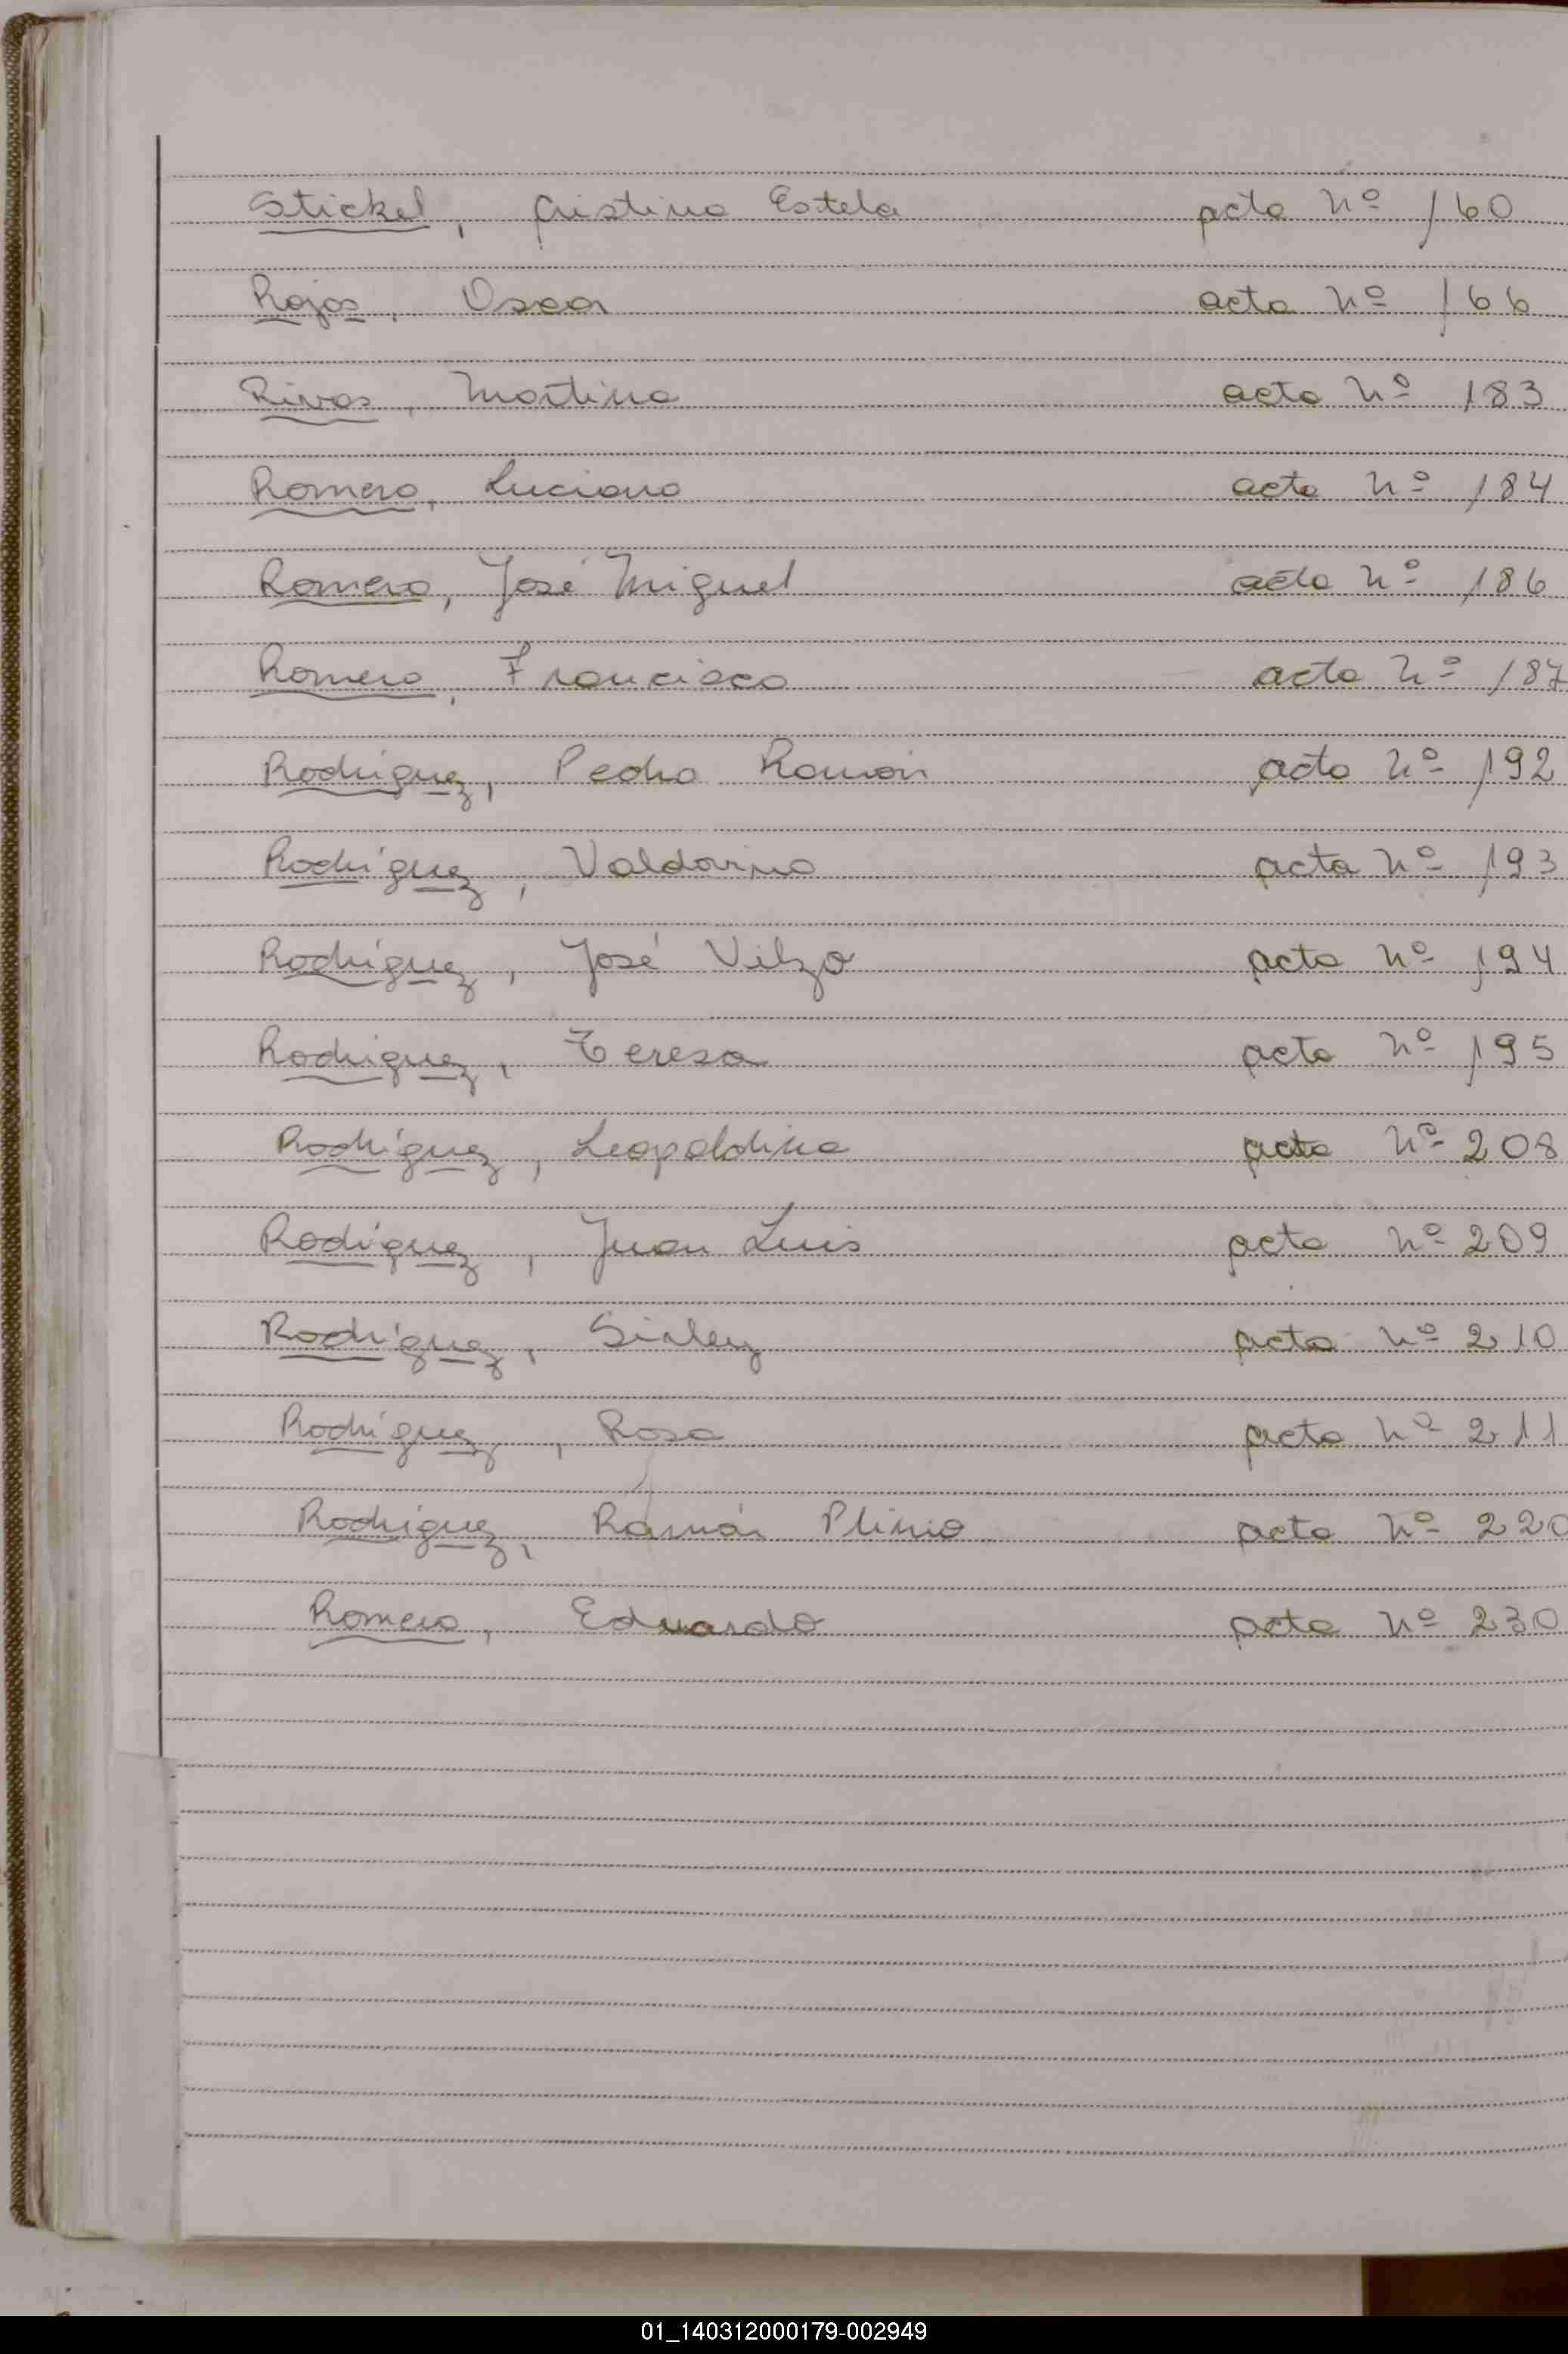 Stickel, Cristina Estela acta nº 160
Rojas, Oscar acta nº 166
Rivas, Martina acta nº 183
Romero, Luciano acta nº 184
Romero, José Miguel acta nº 186
Romero, Francisco acta nº 187
Rodriguez, Pedro Ramón acta nº 192
Rodríguez, Valdovino acta nº 193
Rodríguez, José Vilzo acta nº 194
Rodriguez, Teresa acta nº 195
Rodríguez, Leopoldina acta nº 208
Rodiguez, Juan Luis acta nº 209
Rodríguez, Sirley acta nº 210
Rodríguez, Rosa acta nº 211
Rodriguez, Ramón Plinio acta nº 220
Romero, Eduardo acta nº 230
01_140312000179-002949